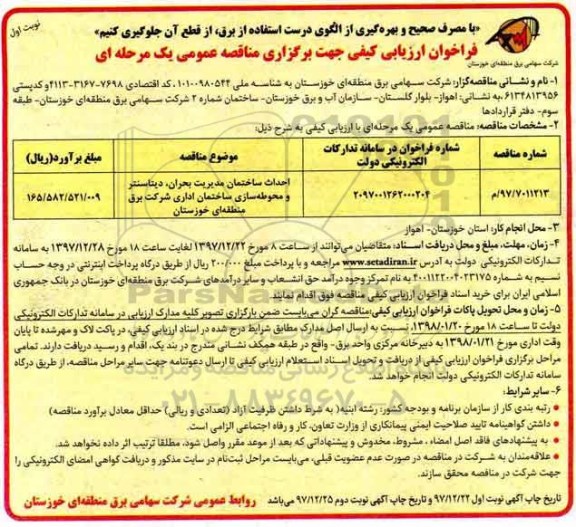 نوبت اول
«با مصرف صحیح و بهره‌گیری از الگوی درست استفاده از برق، از قطع آن جلوگیری کنیم»
فراخوان ارزیابی کیفی جهت برگزاری مناقصه عمومی یک مرحله ای
شرکت سهامی برق منطقه‌ای خوزستان
۱- نام و نشانی مناقصه‌گزار: شرکت سهامی برق منطقه‌ای خوزستان به شناسه ملی ۱۰۱۰۰۹۸۰۵۴۴، کد اقتصادی ۷۶۹۸-۳۱۶۷-۴۱۱۳ و کدپستی
۶۱۳۴۸۱۳۹۵۶، به نشانی: اهواز- بلوار گلستان- سازمان آب و برق خوزستان- ساختمان شماره ۲ شرکت سهامی برق منطقه‌ای خوزستان- طبقه
سوم- دفتر قراردادها
۲- مشخصات مناقصه: مناقصه عمومی یک مرحله‌ای با ارزیابی کیفی به شرح ذیل:
شماره مناقصه
شماره فراخوان در سامانه تدارکات الکترونیکی دولت
موضوع مناقصه
مبلغ برآورد(ریال)
۹۷/۷۰۱۱۲۱۳/م
۲۰۹۷۰۰۱۲۶۲۰۰۰۲۰۴
احداث ساختمان مدیریت بحران، دیتاسنتر
و محوطه‌سازی ساختمان اداری شرکت برق
منطقه‌ای خوزستان
۱۶۵/۵۸۲/۵۲۱/۰۰۹
۳- محل انجام کار: استان خوزستان- اهواز
۴- زمان، مهلت، مبلغ و محل دریافت اسناد: متقاضیان می‌توانند از ساعت ۸ مورخ ۱۳۹۷/۱۲/۲۲ لغایت ساعت ۱۸ مورخ ۱۳۹۷/۱۲/۲۸ به سامانه
تدارکات الکترونیکی دولت به آدرس www.setadiran.ir مراجعه و با پرداخت مبلغ ۲۰۰/۰۰۰ ریال از طریق درگاه پرداخت اینترنتی در وجه حساب
نسیم به شماره ۴۰۰۱۱۲۲۰۰۴۰۲۳۱۷۵ به نام تمرکز وجوه درآمد حق انشعاب و سایر درآمدهای شرکت برق منطقه‌ای خوزستان در بانک جمهوری
اسلامی ایران برای خرید اسناد فراخوان ارزیابی کیفی مناقصه فوق اقدام نمایند.
۵- زمان و محل تحویل پاکات فراخوان ارزیابی کیفی: مناقصه گران می‌بایست ضمن بارگزاری تصویر کلیه مدارک ارزیابی در سامانه تدارکات الکترونیکی
دولت تا ساعت ۱۸ مورخ ۱۳۹۸/۰۱/۲۰، نسبت به ارسال اصل مدارک مطابق شرایط درج شده در اسناد ارزیابی کیفی، در پاکت لاک و مهرشده تا پایان
وقت اداری مورخ ۱۳۹۸/۰۱/۲۱ به دبیرخانه مرکزی واحد برق- واقع در طبقه همکف نشانی مندرج در بند یک، اقدام و رسید دریافت دارند. تمامی
مراحل برگزاری فراخوان ارزیابی کیفی از دریافت و تحویل اسناد استعلام ارزیابی کیفی تا ارسال دعوتنامه جهت سایر مراحل مناقصه، از طریق درگاه
سامانه تدارکات الکترونیکی دولت انجام خواهد شد.
۶- سایر شرایط:
● رتبه بندی کار از سازمان برنامه و بودجه کشور: رشته ابنیه( به شرط داشتن ظرفیت آزاد (تعدادی و ریالی) حداقل معادل برآورد مناقصه)
● داشتن گواهینامه تایید صلاحیت ایمنی پیمانکاری از وزارت تعاون، کار و رفاه اجتماعی الزامی است.
● به پیشنهادهای فاقد اصل امضاء ، مشروط، مخدوش و پیشنهاداتی که بعد از موعد مقرر واصل شود، مطلقا ترتیب اثر داده نخواهد شد.
● علاقه‌مندان به شرکت در مناقصه در صورت عدم عضویت قبلی، می‌بایست مراحل ثبت‌نام در سایت مذکور و دریافت گواهی امضای الکترونیکی را
جهت شرکت در مناقصه محقق سازند.
تاریخ چاپ آگهی نوبت اول ۹۷/۱۲/۲۲ و تاریخ چاپ آگهی نوبت دوم ۹۷/۱۲/۲۵ می‌باشد
روابط عمومی شرکت سهامی برق منطقه‌ای خوزستان
۰۲۱-۸۸۳۴۹۶۷۰-۵